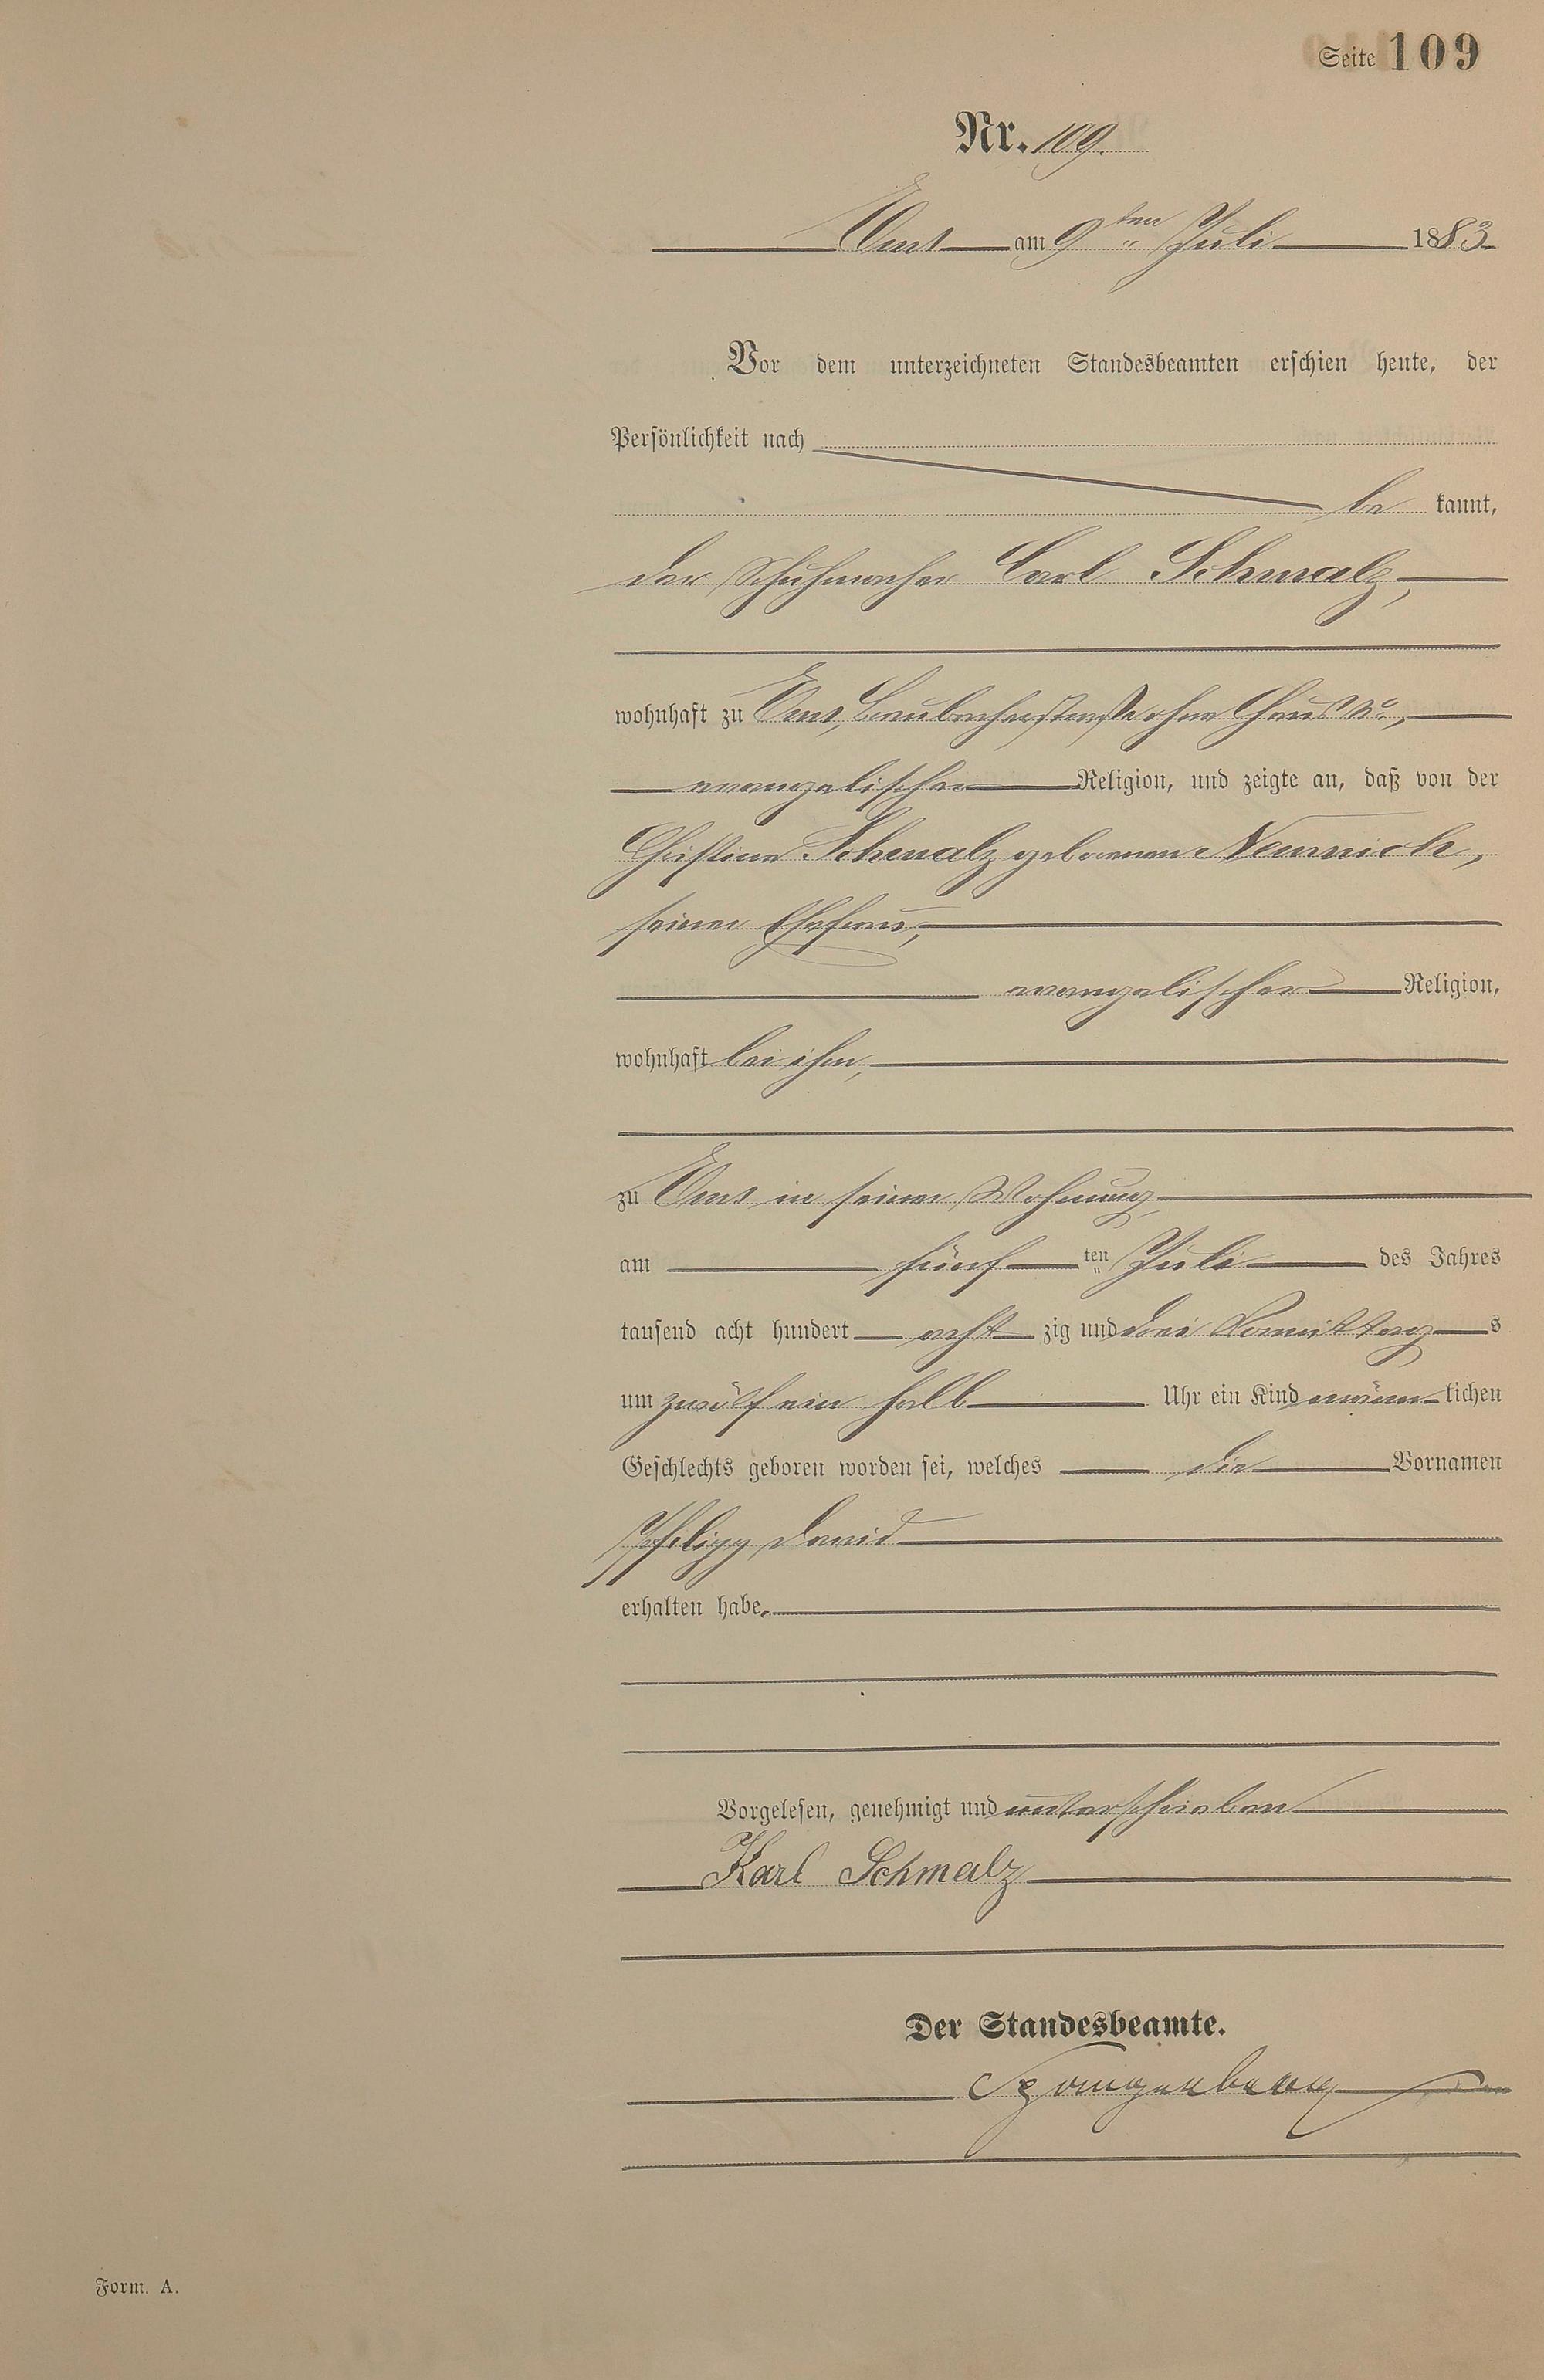 Seite 109
Nr. 109.
Ems am 9ten Juli 1883
Vor dem unterzeichneten Standesbeamten erschien heute, der
Persönlichkeit nach
be kannt,
der Schuhmacher Carl Schmalz,
wohnhaft zu Ems, Braubacherstraße ohne Haus No,
evangelischer Religion, und zeigte an, daß von der
Christine Schmalz geborenen Nennich,
seiner Ehefrau,
evangelischer Religion,
wohnhaft bei ihm,
zu Ems in seiner Wohnung,
am fünf ten Juli des Jahres
tausend acht hundert acht zig und drei Vormittag s
um zwölf ein halb Uhr ein Kind männ lichen
Geschlechts geboren worden sei, welches die Vornamen
Philipp David
erhalten habe.
Vorgelesen, genehmigt und unterschrieben
Karl Schmalz
Der Standesbeamte.
Spangenberg
Form. A.